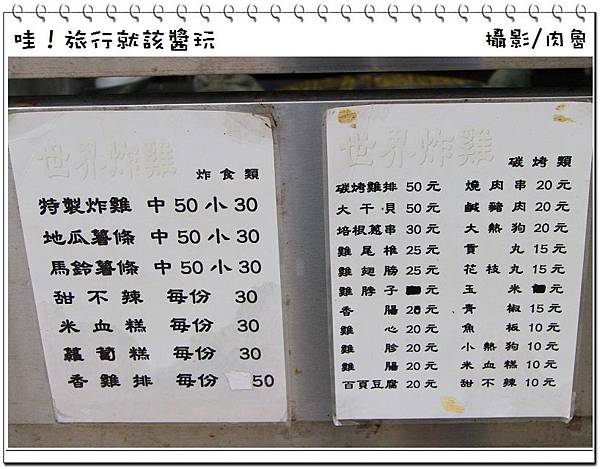 哇！旅行就該醬玩
攝影/肉魯
世界炸雞
炸食類
特製炸雞 中50小30
地瓜薯條 中50小30
馬鈴薯條 中50小30
甜不辣 每份 30
米血糕 每份 30
蘿蔔糕 每份 30
香雞排 每份 50
世界炸雞
碳烤類
碳烤雞排 50元
大干貝 50元
培根蔥串 30元
雞尾椎 25元
雞翅膀 25元
雞脖子 元
香腸 20元
雞心 20元
雞胗 20元
雞腸 20元
百頁豆腐 20元
燒肉串 20元
鹹豬肉 20元
大熱狗 20元
貢丸 15元
花枝丸 15元
玉米 元
青椒 15元
魚板 10元
小熱狗 10元
米血糕 10元
甜不辣 10元